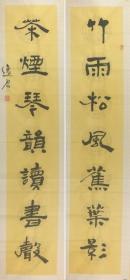 竹雨松風蕉葉影
茶煙琴韻讀書聲